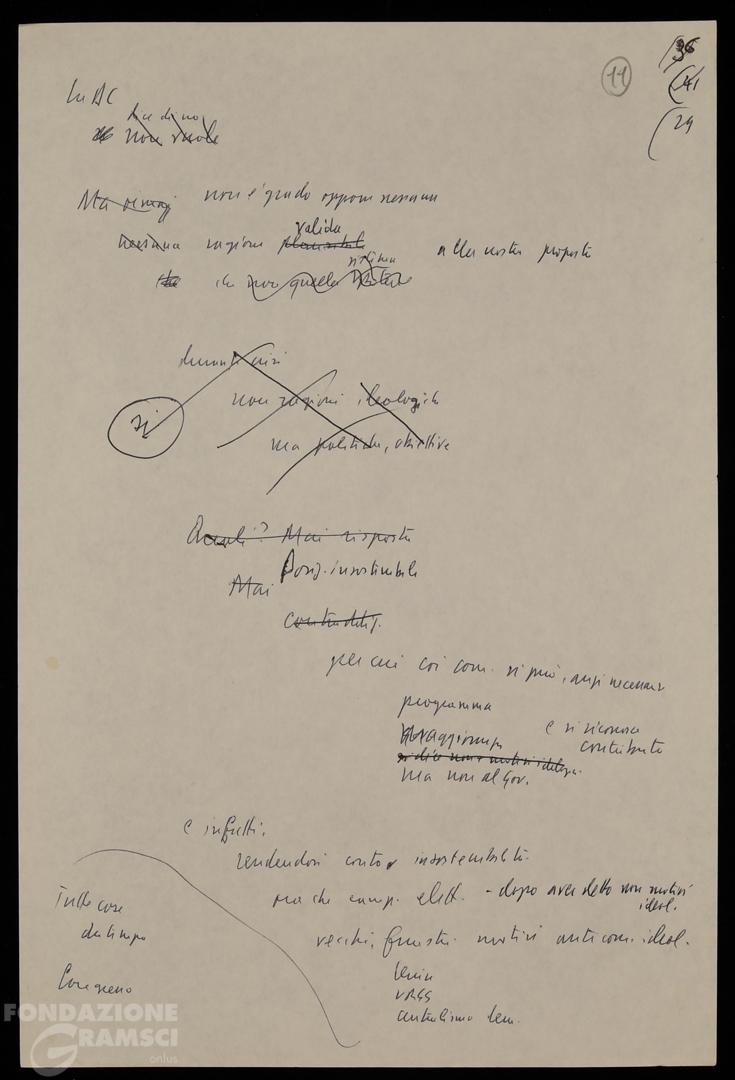 11
(36
(41
(29
La DC
dice di no
non vuole
Ma oggi non è grado opporre nessuna
nessuna ragione valida alla nostra proposta
plausibile
che non quella
durante crisi
non ragioni ideologiche
si
ma politiche, obiettive
Quali? Mai risposta
Mai Posiz. insostenibile
contradditt.
per cui coi com. si può, anzi necessario
programma
e si riconosce
contributo
maggioranza
si dice non x motivi ideologici
ma non al Gov.
e infatti,
rendendosi conto insostenibilità
ma che camp. elett. - dopo aver detto non motivi
ideol.
Tutte cose
da tempo
vecchi, frusti motivi anticom. ideol.
Congresso
Lenin
URSS
centralismo dem.
FONDAZIONE
GRAMSCI
onlus